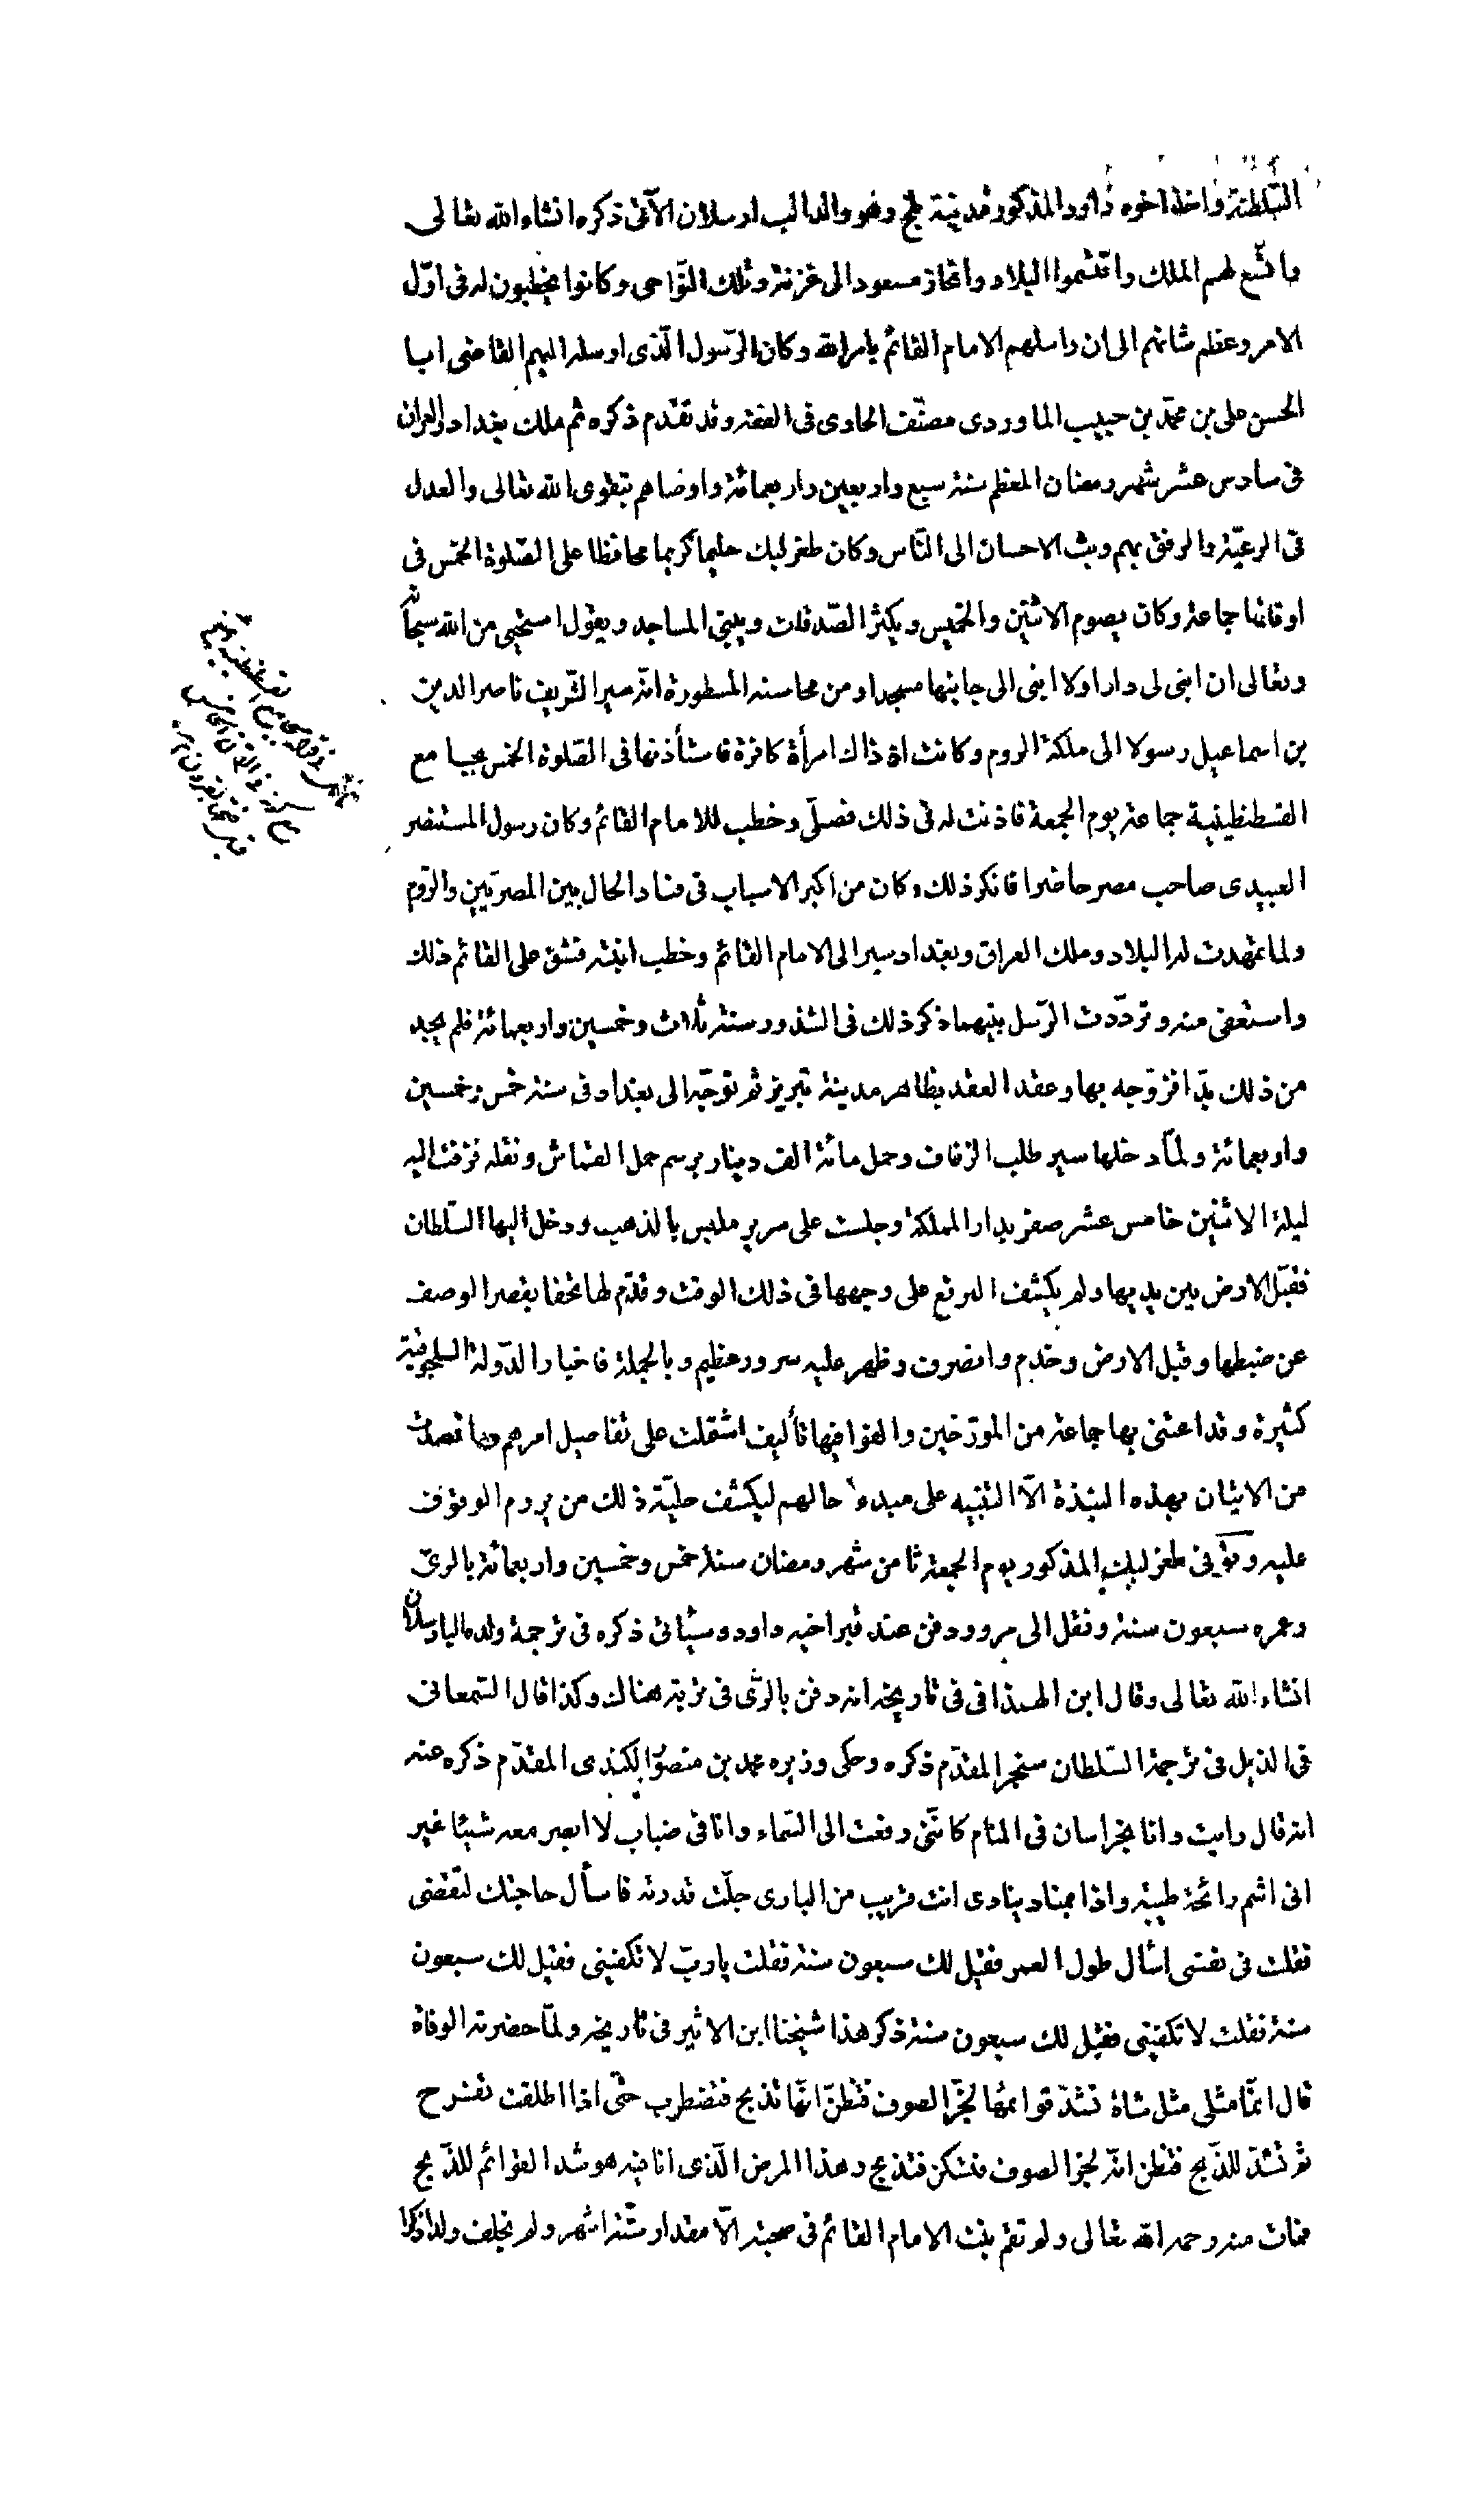 السلطنة واخذ اخوه داود المذكور مدينة بلخ وهو والد الب ارسلان الآتى ذكره انشاء الله تعالى
واتسع لهم الملك واقتسموا البلاد وانحاز مسعود الى غزنة وتلك النواحى وكانوا يخطبون له فى اوّل
الامر وعظم شانهم الى ان راسلهم الامام القائم بامر الله وكان الرّسول الّذى ارسله اليهم القاضى ابا
الحسن على بن محمّد بن حبيب الماوردى مصنّف الحاوى فى الفقه وقد تقدم ذكره ثم ملك بغداد والعراق
فى سادس عشر شهر رمضان المعظم سنة سبع واربعين واربعمائة واوصاهم بتقوى الله تعالى والعدل
فى الرعيّة والرفق بهم وبث الاحسان الى النّاس وكان طغرلبك حليما كريما محافظا على الصّلوة الخمس فى
اوقاتها جماعة وكان يصوم الاثنين والخميس ويكثر الصّدقات ويبنى المساجد ويقول استحيى من الله سبحانه
وتعالى ان ابنى لى دارا ولا ابنى الى جانبها مسجدا ومن محاسنه المسطورة انّه سير الشّريف ناصر الدين
بن اسماعيل رسولا الى ملكة الروم وكانت اذ ذاك امرأة كافرة فاستأذنها فى الصّلوة الخمس بجامع
القسطنطينية جماعة يوم الجمعة فاذنت له فى ذلك فصلّى وخطب للامام القائم وكان رسول المستنصر
العبيدى صاحب مصر حاضرا فانكر ذلك وكان من اكبر الاسباب فى فساد الحال بين المصريّين والرّوم
ولما تمهدت له البلاد وملك العراق وبغداد سير الى الامام القائم وخطب ابنته فشق على القائم ذلك
واستعفى منه وتردّدت الرّسل بينهما ذكر ذلك فى الشذور سنة ثلاث وخمسين واربعمائة فلم يجد
من ذلك بدّا فزوّجه بها وعقد العقد بظاهر مدينة تبريز ثم توجّه الى بغداد فى سنة خمس وخمسين
واربعمائة ولمّا دخلها سير طلب الزفاف وحمل مائة الف دينار برسم حمل القماش ونقله فزفت اليه
ليلة الاثنين خامس عشر صفر بدار المملكة وجلست على سرير ملبس بالذهب ودخل اليها السّلطان
فقبّل الارض بين يديها ولم يكشف البرقع على وجهها فى ذلك الوقت وقدّم لها تحفا يقصر الوصف
عن ضبطها وقبل الارض وخدم وانصرف وظهر عليه سرور عظيم وبالجملة فاخبار الدّولة السلجوقية
كثيرة وقد اعتنى بها جماعة من المورّخين والفوا فيها تأليف اشتملت على تفاصيل امرهم وما قصدت
من الاتيان بهذه النبذة الّا التنبيه على مبدء حالهم ليكشف حليّة ذلك من يروم الوقوف
عليه وتوفى طغرلبك المذكور يوم الجمعة ثامن شهر رمضان سنة خمس وخمسين واربعمائة بالرىّ
وعمره سبعون سنة ونقل الى مرو ودفن عند قبر اخيه داود وسيأتى ذكره فى ترجمة ولده الب ارسلان
انشاء الله تعالى وقال ابن الهمذانى فى تاريخه انه دفن بالرّى فى تربة هناك وكذا قال السّمعانى
فى الذيل فى ترجمة السّلطان سنجر المقدّم ذكره وحكى وزيره محمد بن منصور الكندى المقدّم ذكره عنه
انه قال رايت وانا بخراسان فى المنام كانّنى رفعت الى السّماء وانا فى ضباب لا ابصر معه شيئا غير
انى اشم رائحة طيبة واذا بمناد ينادى انت قريب من البارى جلّت قدرته فاسأل حاجتك لتقضى
فقلت فى نفسى اسأل طول العمر فقيل لك سبعون سنة فقلت يا ربّ لا تكفينى فقيل لك سبعون
سنة فقلت لا تكفينى فقيل لك سبعون سنة ذكر هذا شيخنا ابن الاثير فى تاريخه ولمّا حضرته الوفاة
قال انّما مثلى مثل شاة تشدّ قوائمها لجزّ الصوف فتظنّ انّها تذبح فتضطرب حتّى اذا اطلقت تفرح
ثم تشدّ للذّبح فتظن انّه لجز الصوف فتسكن فتذبح وهذا المرض الّذى انا فيه هو شد القوائم للذّبح
فمات منه رحمه الله تعالى ولم تقم بنت الامام القائم فى صحبته الّا مقدار ستّة اشهر ولم يخلف ولدا ذكرا